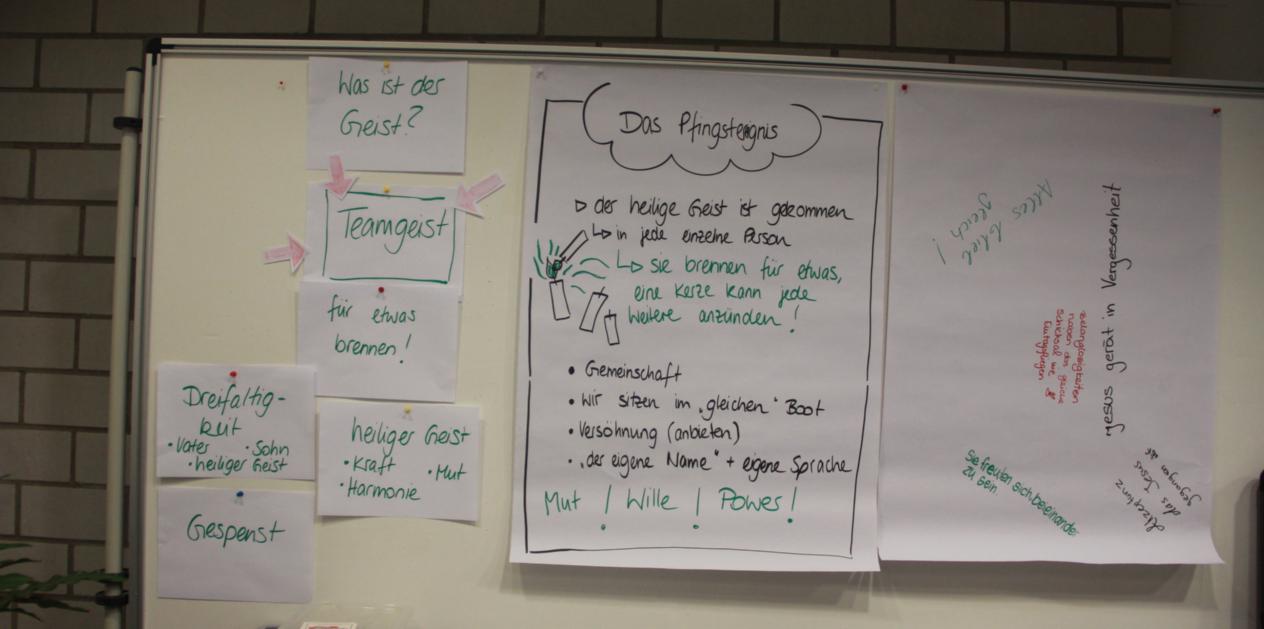 Was ist der
Geist?
Teamgeist
für etwas
brennen!
Dreifaltig-
keit
• Vater • Sohn
• heiliger Geist
heiliger Geist
• Kraft • Mut
• Harmonie
Gespenst
Das Pfingstereignis
▷ der heilige Geist ist gekommen
↳ in jede einzelne Person
↳ sie brennen für etwas,
eine Kerze kann jede
weitere anzünden!
• Gemeinschaft
• Wir sitzen im „gleichen" Boot
• Versöhnung (anbieten)
• „der eigene Name" + eigene Sprache
Mut ! Wille ! Power!
Alles blieb
gleich!
Jesus gerät in Vergessenheit
Sie freuten sich beieinander
zu sein
Akzeptanz
das Jesus
gegangen ist